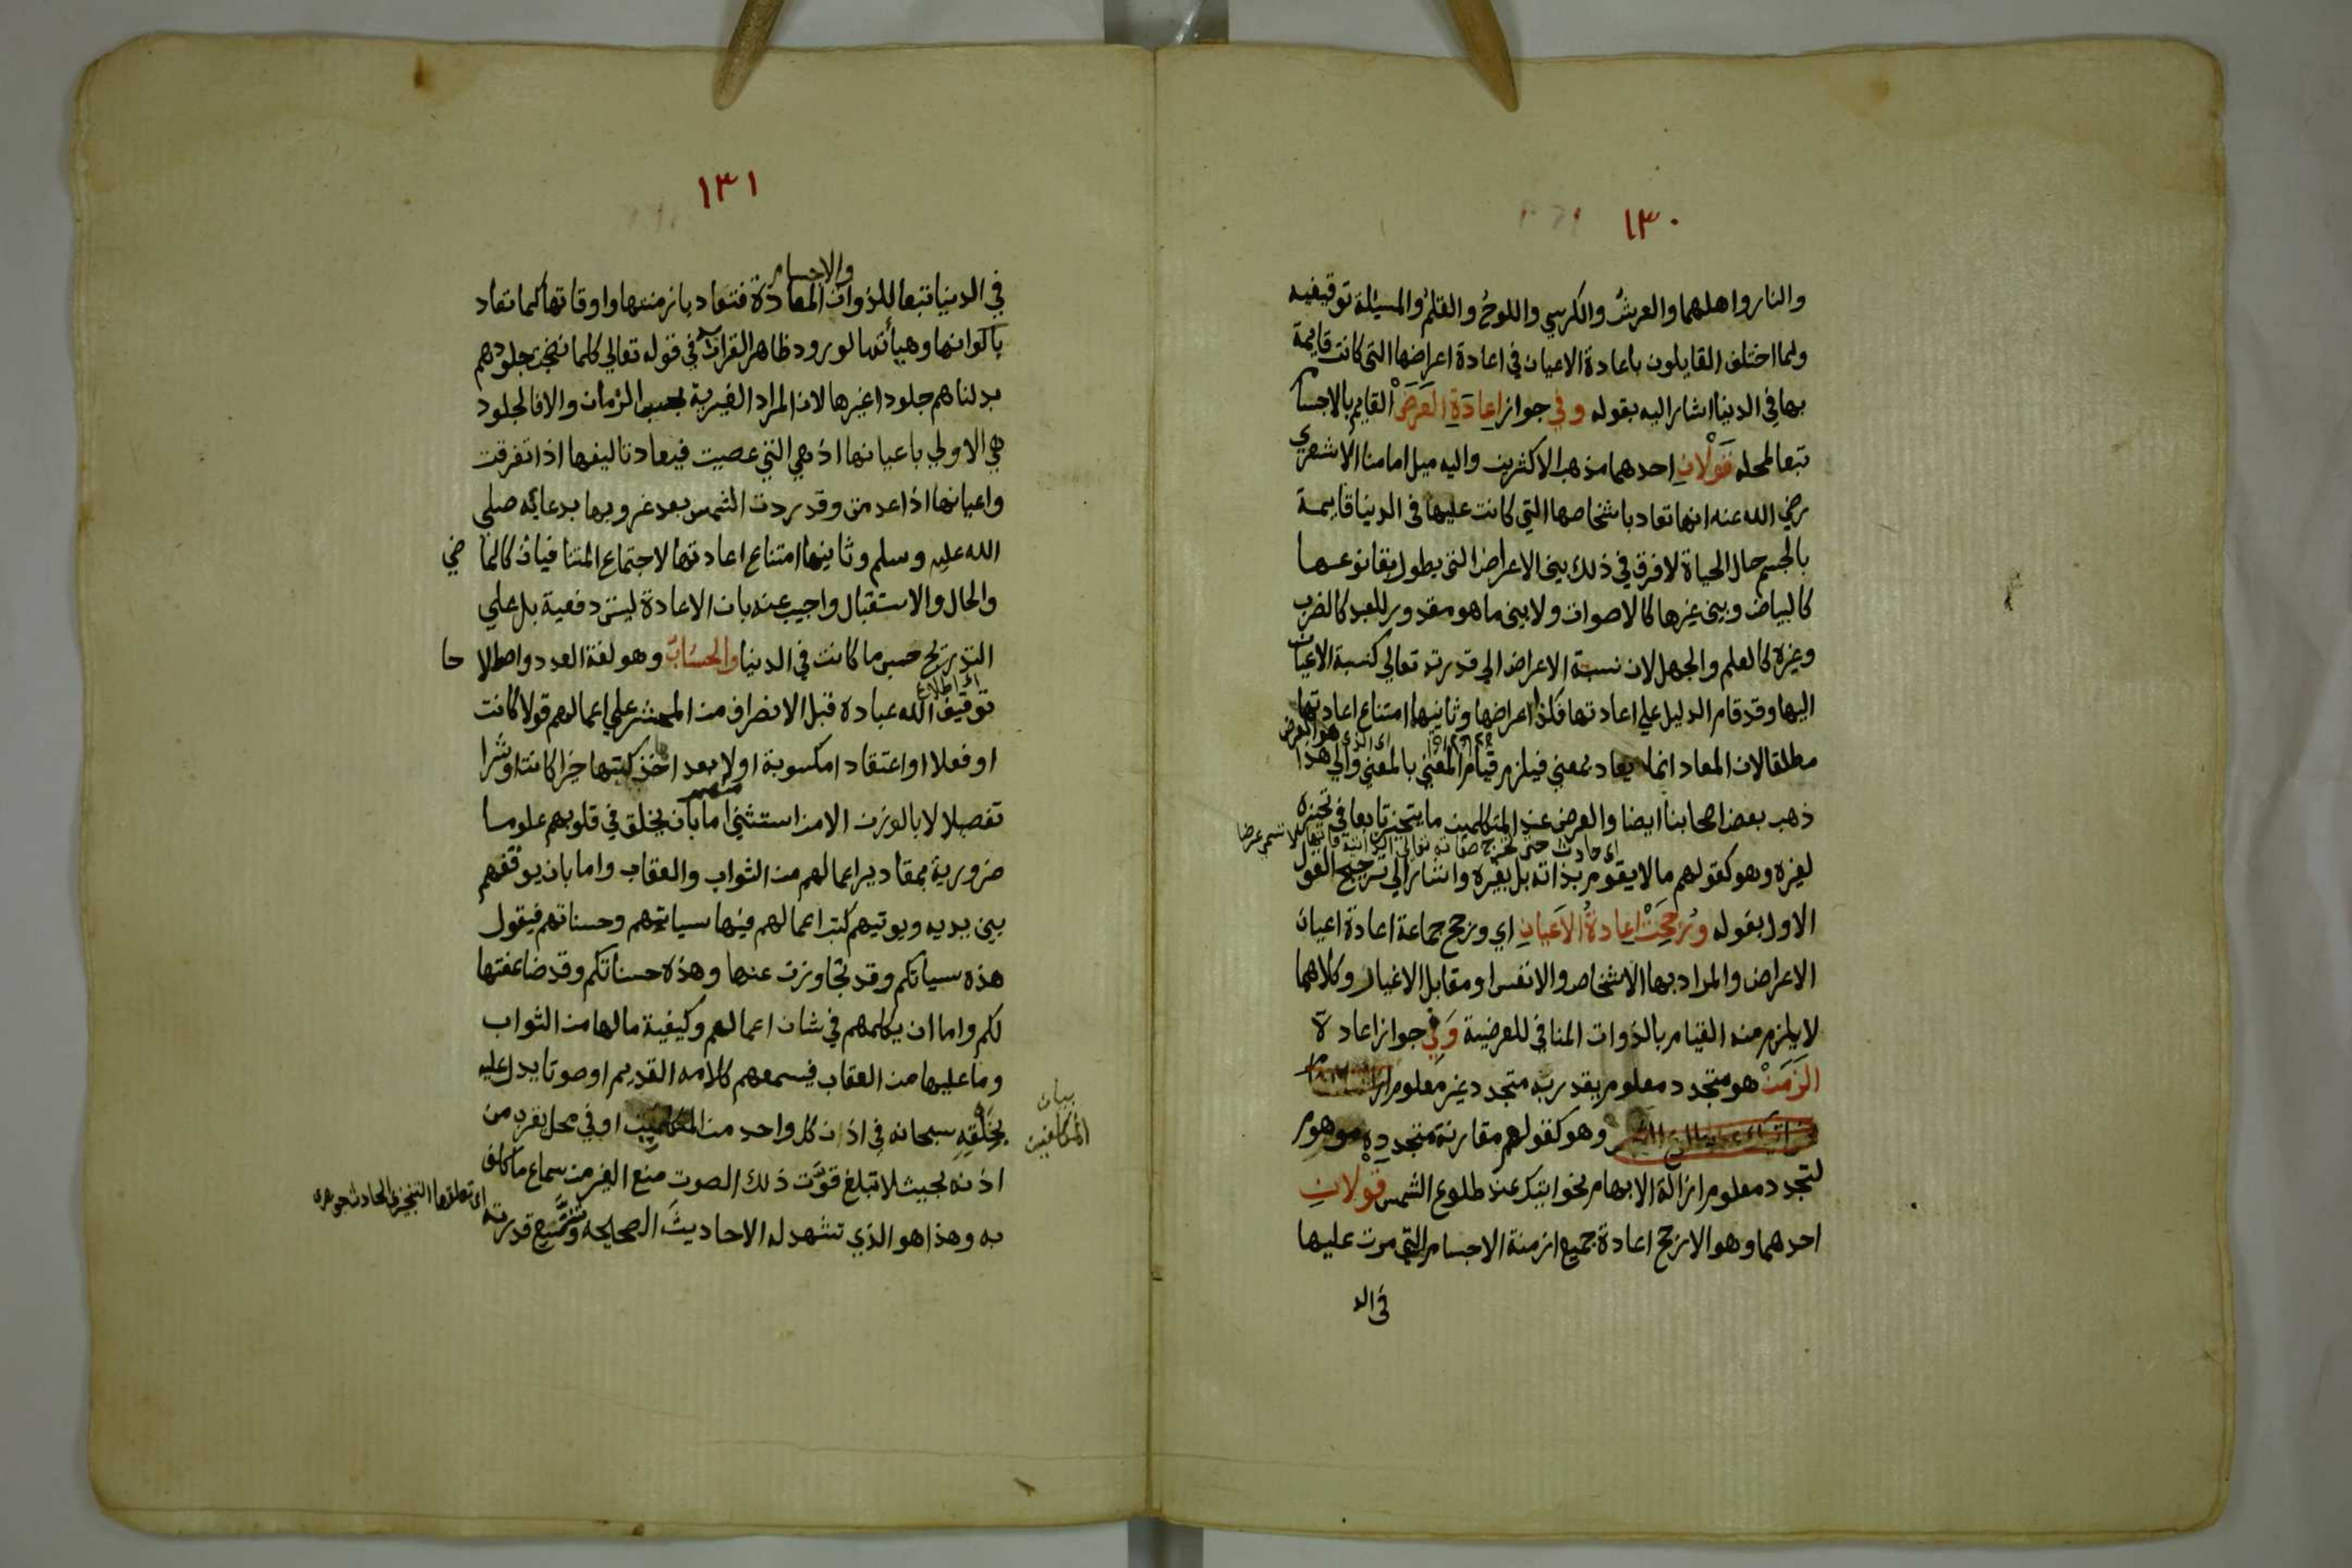 ١٣٠
والنار واهلهما والعرش والكرسي واللوح والقلم والمسئلة توقيفيه
ولما اختلف القايلون باعادة الاعيان في اعادة اعراضها التى كانت قايمة
بها في الدنيا اشار اليه بقوله وفي جواز اعادة العرض القايم بالاجسام
تبعا لمحله قولان احدهما مذهب الاكثرين واليه ميل امامنا الاشعري
رضي الله عنه انها تعاد باشخاصها التي كانت عليها في الدنيا قايمة
بالجسم حال الحياة لا فرق في ذلك بين الاعراض التى يطول بقا نوعها
كالبياض وبين غيرها كالاصوات ولا بين ما هو مقدور للعبد كالضرب
وغيره كالعلم والجهل لان نسبة الاعراض الي قدرته تعالي كنسبة الاعيان
اليها وقد قام الدليل علي اعادتها فكذا اعراضها وثانيها امتناع اعادتها
اي الذي هو العرض
مطلقا لان المعاد انما يعاد بمعني فيلزم قيام المعني بالمعني والي هذا
ذهب بعض اصحابنا ايضا والعرض عند المتكلمين ما يتحيز تابعا في تحيزه
اي حادث حتى تخرج صفاته تعالى الذاتية فانها لا تسمى عرضا
لغيره وهو كقولهم ما لا يقوم بذاته بل بغيره واشار الي ترجيح القول
الاول بقوله ورجحت اعادة الاعيان اي ورجح جماعة اعادة اعيان
الاعراض والمراد بها الاشخاص والانفس او مقابل الاغيار وكلاهما
لا يلزم منه القيام بالذوات المنافي للعرضية وفي جواز اعادة
الزمن هو متجدد معلوم يقدر به متجدد غير معلوم
وهو كقولهم مقارنة متجدد موهوم
لتجدد معلوم ازالة الابهام نحو اتيتك عند طلوع الشمس قولان
احدهما وهو الارجح اعادة جميع ازمنة الاجسام التي مرت عليها
في الد
١٣١
والاجسام
في الدنيا تبعا للذوات المعادة فتعاد بازمنتها واوقاتها كما تعاد
باكوانها وهيأتها لورود ظاهر القران في قوله تعالي كلما نضجت جلودهم
بدلناهم جلودا غيرها لان المراد الغيرية بحسب الزمان والا فالجلود
هي الاولي باعيانها اذ هي التي عصيت فيعاد تاليفها اذا تفرقت
واعيانها اذا عدمت وقد ردت الشمس بعد غروبها بدعائه صلي
الله عليه وسلم وثانيها امتناع اعادتها لاجتماع المتنافيات كالما ضي
والحال والاستقبال واجيب عنه بان الاعادة ليست دفعية بل علي
التدريج حسب ما كانت في الدنيا والحساب وهو لغة العدد واصطلا حا
اي اطلاع
توقيف الله عباده قبل الانصراف من المحشر علي اعمالهم قولا كانت
او فعلا او اعتقادا مكسوبة اولا بعد اخذ كتبها خيرا كانت او شرا
منهم
تفصيلا لا بالوزن الا من استثني اما بان يخلق في قلوبهم علوما
ضرورية بمقادير اعمالهم من الثواب والعقاب واما بان يوقفهم
بين يديه ويوتيهم كتب اعمالهم فيها سياتهم وحسناتهم فيقول
هذه سياتكم وقد تجاوزت عنها وهذه حسناتكم وقد ضاعفتها
لكم واما ان يكلمهم في شان اعمالهم وكيفية مالها من الثواب
وما عليها من العقاب فيسمعهم كلامه القديم او صوتا يدل عليه
يخلقه سبحانه في اذن كل واحد من المكلفين او في محل يقرب من
بيان
المكلفين
اذنه بحيث لا تبلغ قوت ذلك الصوت منع الغير من سماع ما كلف
به وهذا هو الذي تشهد له الاحاديث الصحيحه وتتسع قدرته
اي تعلقها التنجيزي الحادث